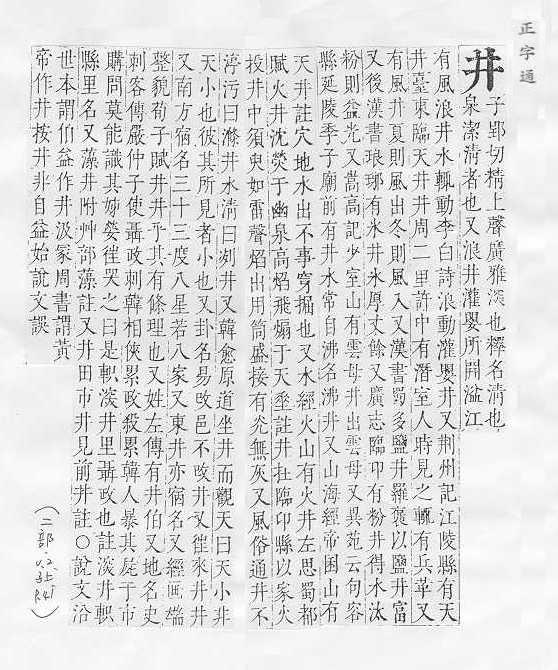 正字通
井
子郢切精上聲廣雅深也釋名淸也
泉潔淸者也又浪井灌嬰所開湓江
有風浪井水輒動李白詩浪動灌嬰井又荆州記江陵縣有天
井臺東臨天井井周二里許中有潛室人時見之輒有兵革又
有風井夏則風出冬則風入又漢書蜀多鹽井羅裒以鹽井富
又後漢書琅琊有氷井氷厚丈餘又廣志臨卭有粉井得水汰
粉則益光又嵩高記少室山有雲母井出雲母又異苑云句容
縣延陵季子廟前有井水常自沸名沸井又山海經帝囷山有
天井註穴地水出不事穿掘也又水經火山有火井左思蜀都
賦火井沈熒于幽泉高焰飛煽于天垂註井在臨卭縣以家火
投井中須臾如雷聲焰出用筒盛接有炎無灰又風俗通井不
渟污曰滌井水淸曰冽井又韓愈原道坐井而觀天曰天小非
天小也彼其所見者小也又卦名易改邑不改井又徃來井井
又南方宿名三十三度八星若八家又東井亦宿名又經画端
整貌荀子賦井井乎其有條理也又姓左傳有井伯又地名史
刺客傳嚴仲子使聶政刺韓相俠累政殺累韓人暴其屍于市
購問莫能識其姊嫈徃哭之曰是軹深井里聶政也註深井軹
縣里名又藻井附艸部藻註又井田市井見前井註〇說文沿
世本謂伯益作井汲冢周書謂黃
帝作井按井非自益始說文誤
(二部·